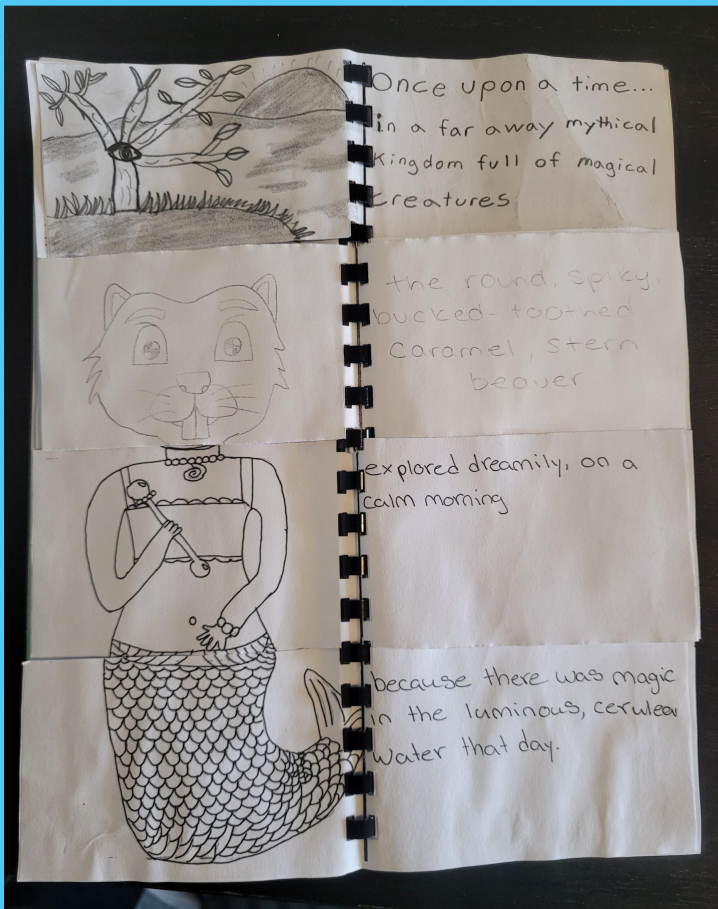 Once upon a time...
in a far away mythical
kingdom full of magical
creatures
the round, spiky,
bucked-toothed
caramel, stern
beaver
explored dreamily, on a
calm morning
because there was magic
in the luminous, cerulean
water that day.